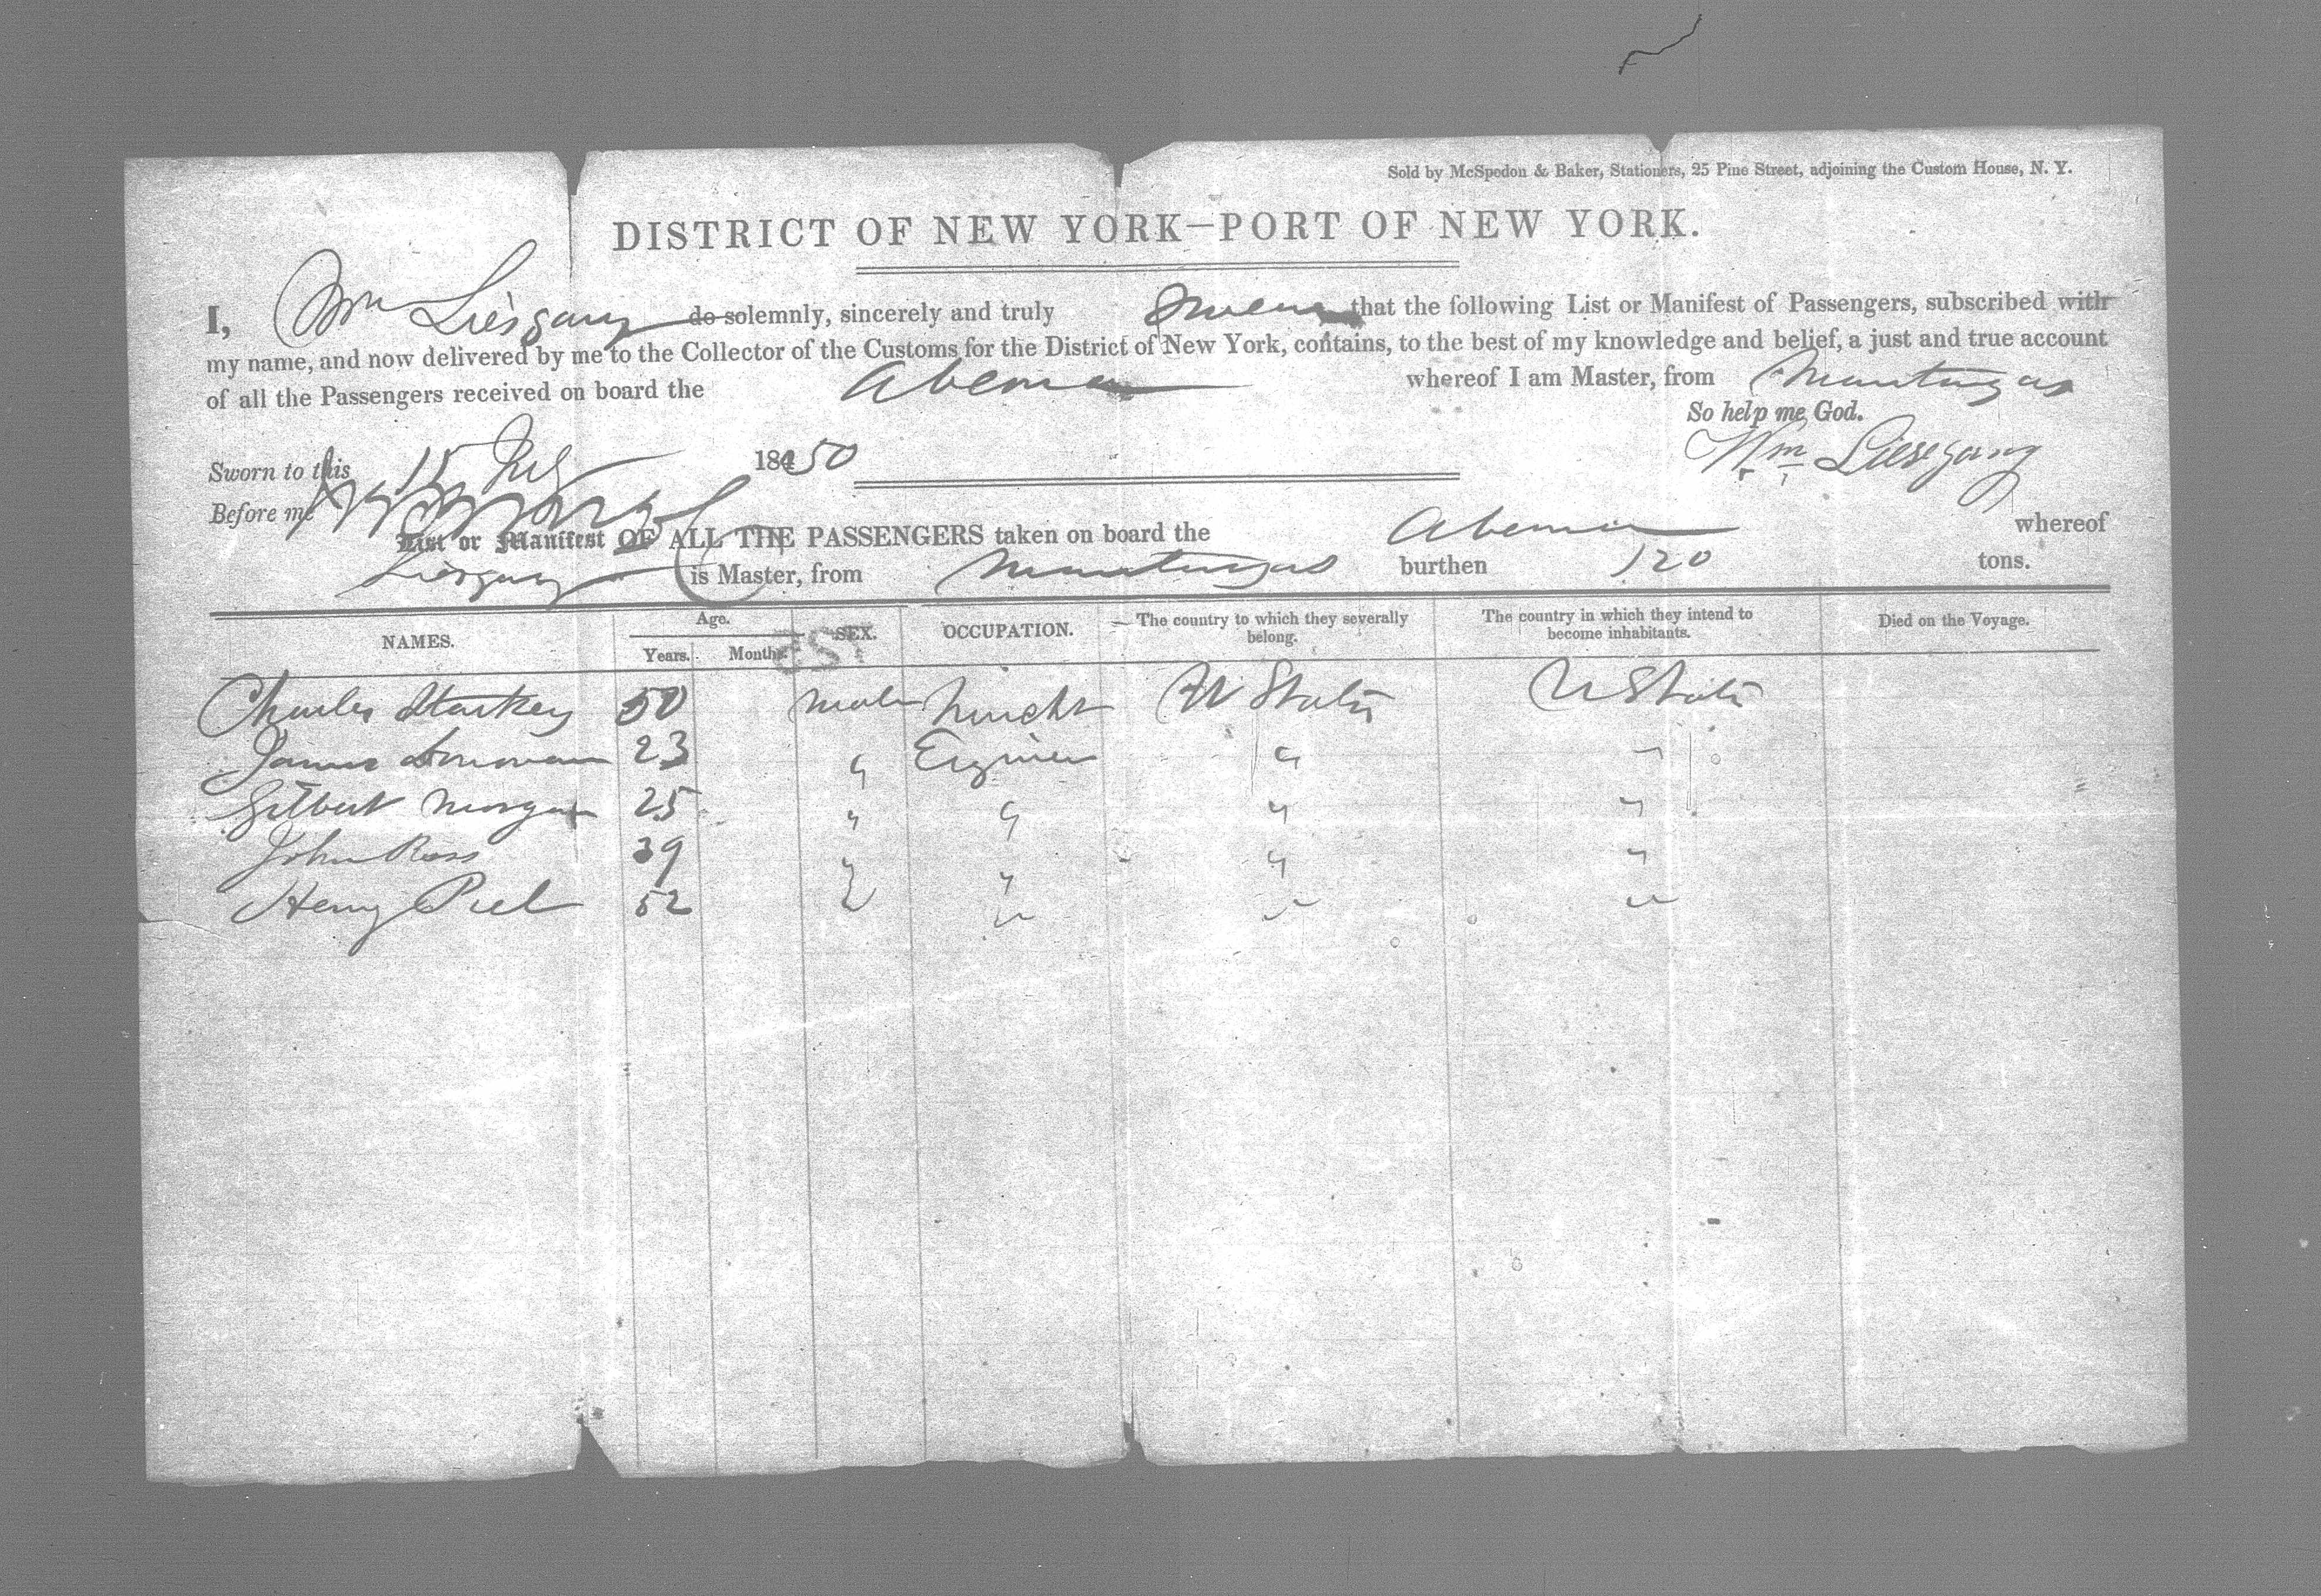 Sold by McSpedon & Baker, Stationers, 25 Pine Street, adjoining the Custom House, N. Y.
DISTRICT OF NEW YORK—PORT OF NEW YORK.
I, Wm Liesegang do solemnly, sincerely and truly swear that the following List or Manifest of Passengers, subscribed with
my name, and now delivered by me to the Collector of the Customs for the District of New York, contains, to the best of my knowledge and belief, a just and true account
of all the Passengers received on board the whereof I am Master, from
So help me God.
Sworn to this 15 July 1850
Wm Liesegang
Before me
List or Manifest OF ALL THE PASSENGERS taken on board the whereof
Liesegang is Master, from burthen 120 tons.
NAMES. Age. Years. Months. SEX. OCCUPATION. The country to which they severally belong. The country in which they intend to become inhabitants. Died on the Voyage.
Charles Starkey 50 male U States U States
James Donovan 23 " Engineer " "
Gilbert Morgan 25 " " " "
John Ross 39 " " " "
Henry 52 " " " "